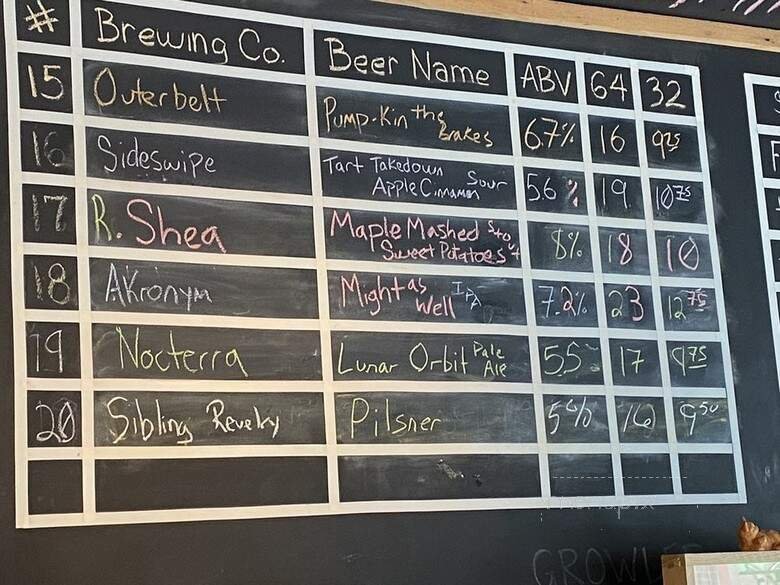 # Brewing Co. Beer Name ABV 64 32
15 Outerbelt Pump-Kin the Brakes 6.7% 16 9 25
16 Sideswipe Tart Takedown Apple Cinnamon Sour 5.6% 19 10 75
17 R. Shea Maple Mashed Sweet Potatoes Stout 8% 18 10
18 Akronym Might as Well IPA 7.2% 23 12 75
19 Nocterra Lunar Orbit Pale Ale 5.5 17 9 75
20 Sibling Revelry Pilsner 5% 16 9 50
GROWLE